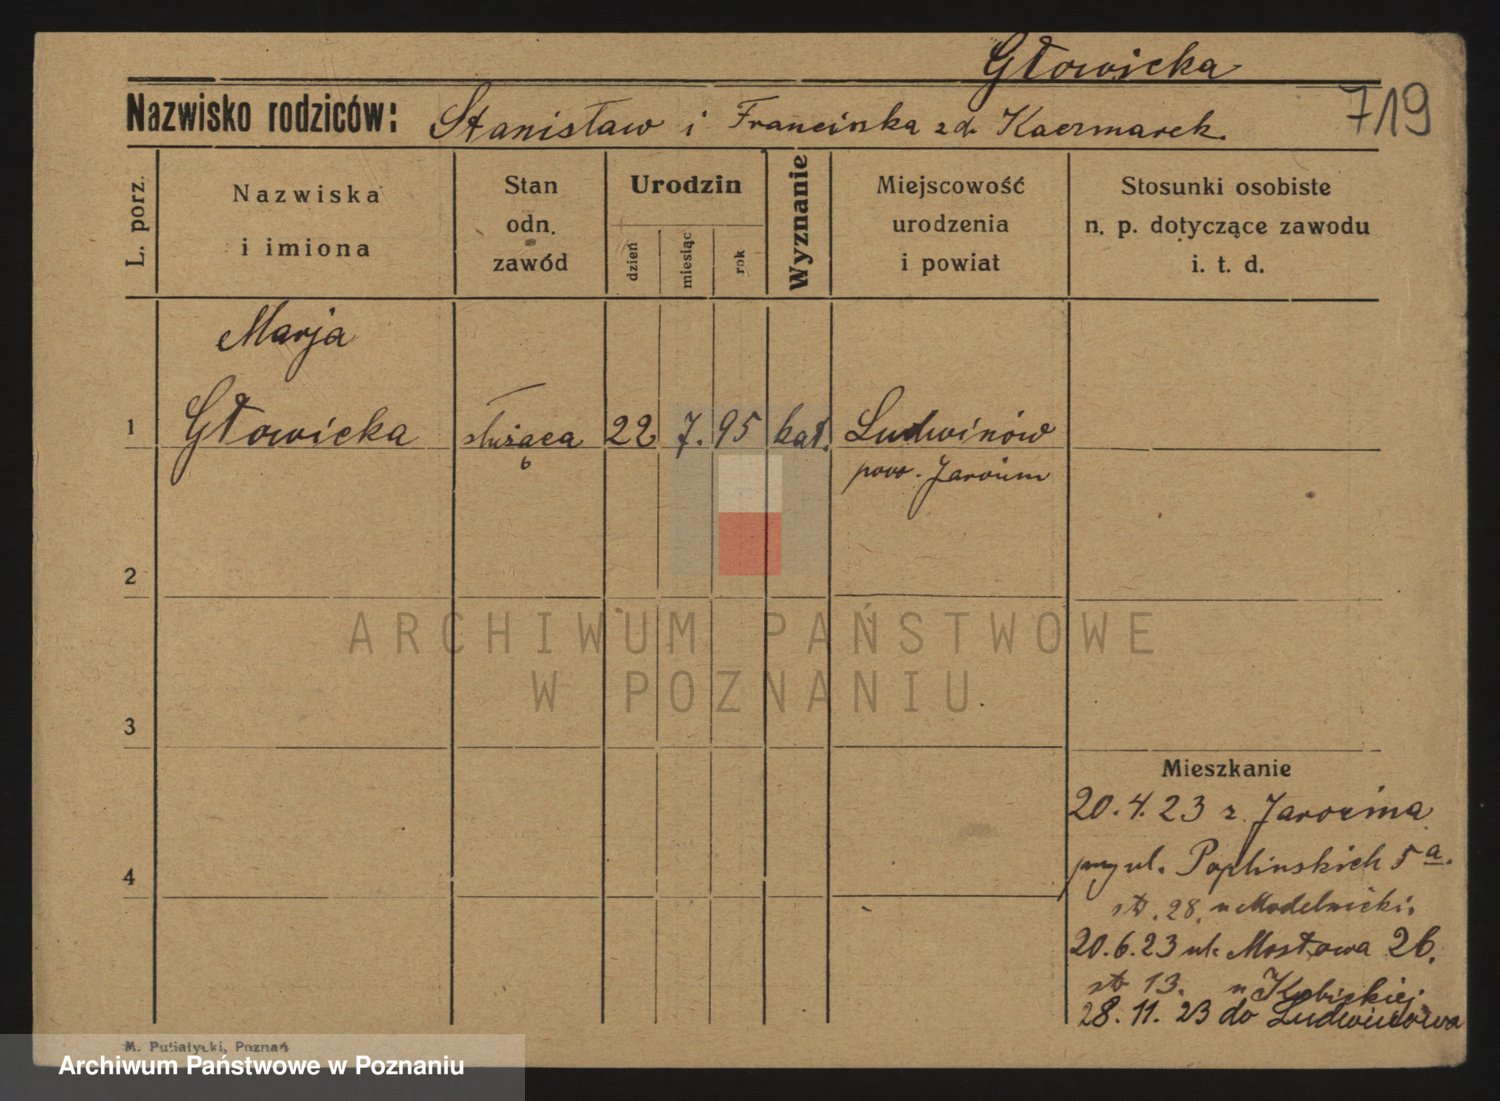 Głowicka
Nazwisko rodziców: Stanisław i Franciszka z d. Kaczmarek
719
L. porz.
Nazwiska
i imiona
Stan
odn.
zawód
Urodzin
dzień
miesiąc
rok
Wyznanie
Miejscowość
urodzenia
i powiat
Stosunki osobiste
n. p. dotyczące zawodu
i. t. d.
Marja
1 Głowicka służąca 22 7. 95 kat. Ludwinów
pow. Jarocin
2
3
4
ARCHIWUM PAŃSTWOWE
W POZNANIU
Mieszkanie
20.4.23 z Jarocina
przy ul. Poplińskich 5 a.
st. 28. u Modelnicki.
20.6.23 ul. Mostowa 26.
st 13. u Kubickiej
28.11.23 do Ludwinowa
M. Putiatycki, Poznań
Archiwum Państwowe w Poznaniu